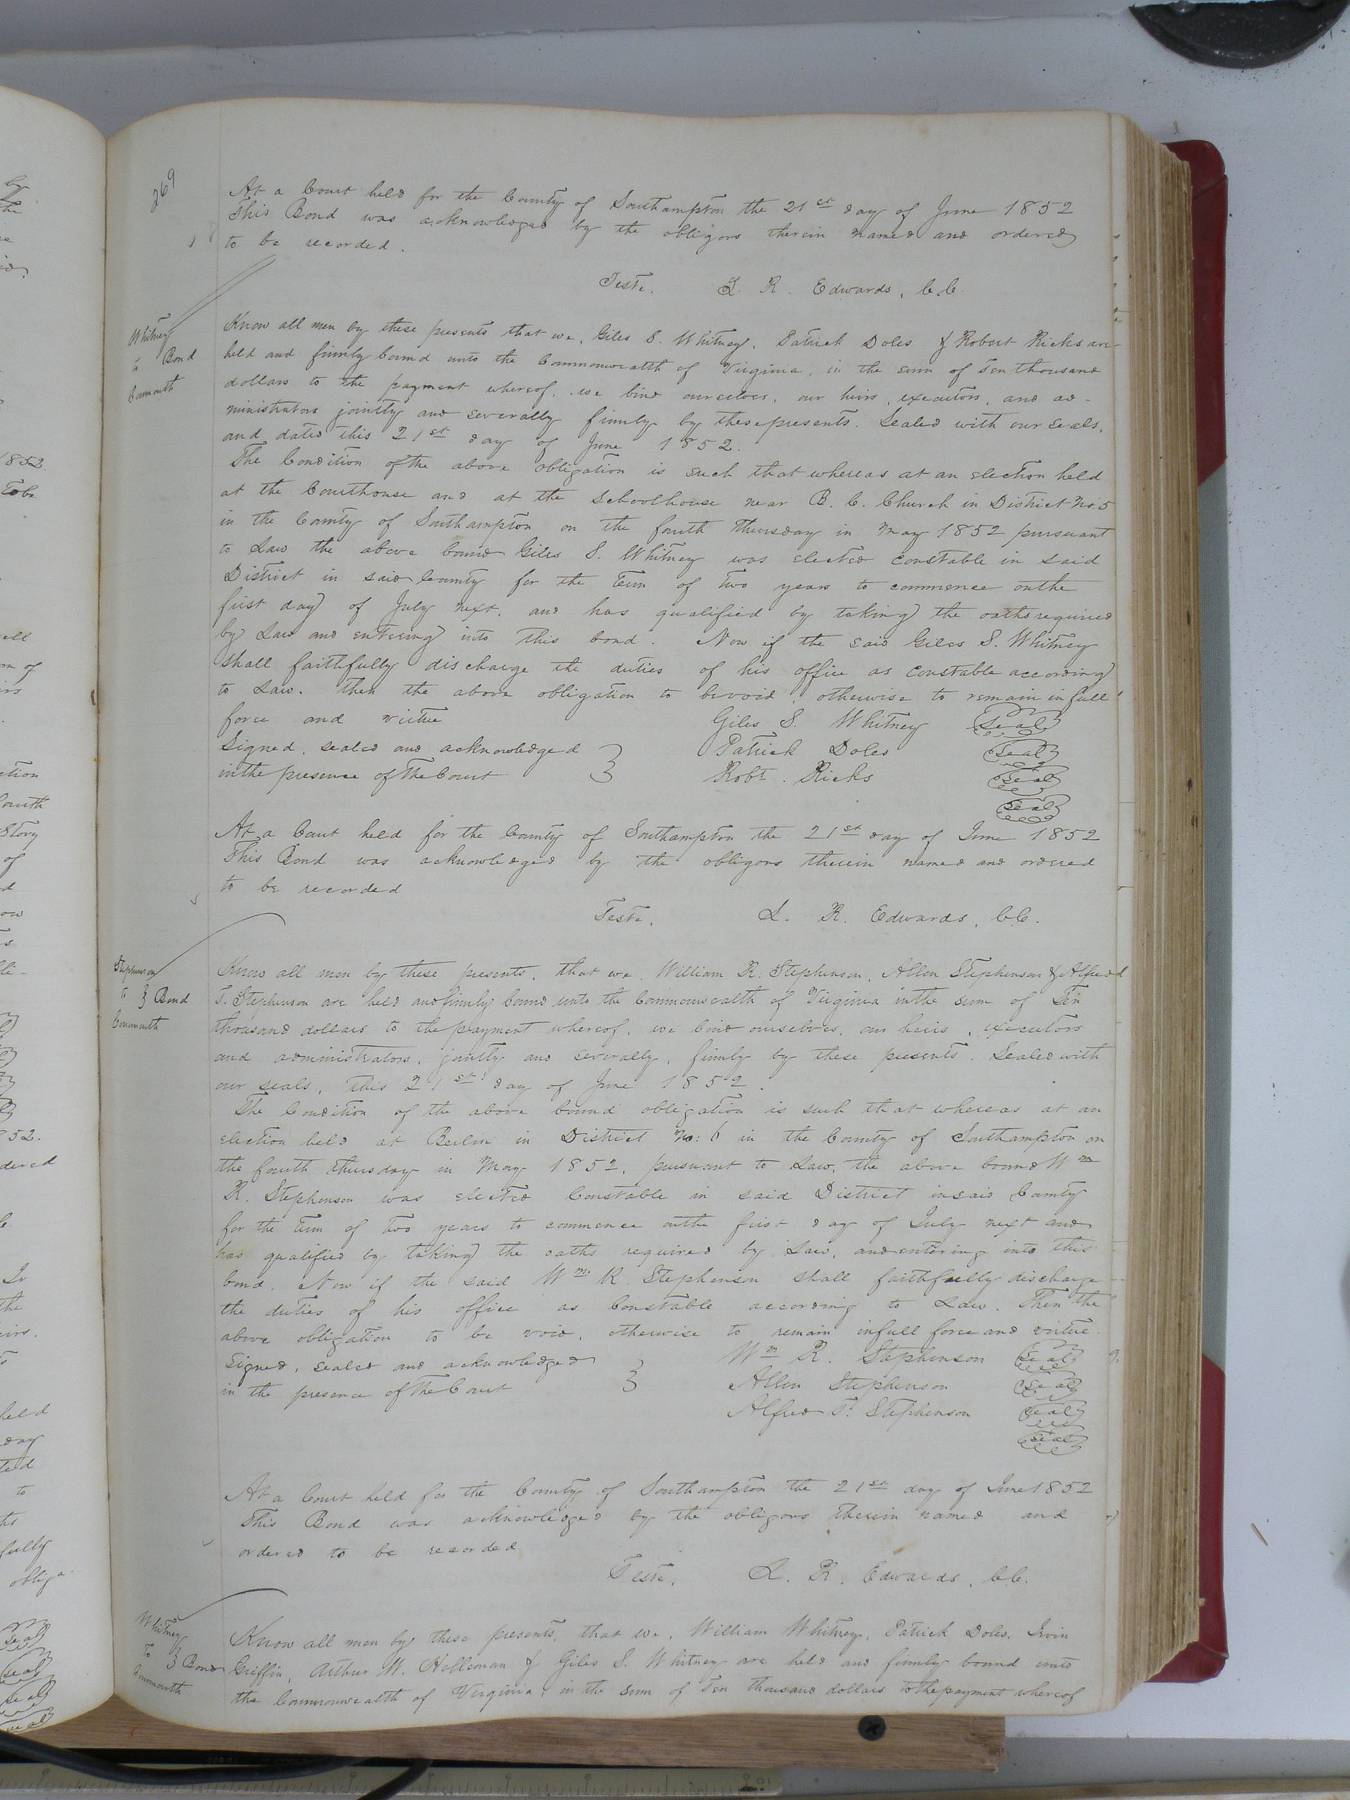 269
At a Court held for the County of Southampton the 21st day of June 1852
This Bond was acknowledged by the obligors therein named and ordered
to be recorded.
Teste. L. R. Edwards, C.C.
Whitney
to Bond
Commwth
Know all men by these presents that we, Giles S. Whitney, Patrick Doles & Robert Ricks are
held and firmly bound unto the Commonwealth of Virginia, in the sum of Ten thousand
dollars to the payment whereof, we bind ourselves, our heirs, executors, and ad-
ministrators jointly and severally firmly by these presents. Sealed with our seals,
and dated this 21st day of June 1852.
The Condition of the above obligation is such that whereas at an election held
at the Courthouse and at the Schoolhouse near B. C. Church in District No. 5
in the County of Southampton on the fourth thursday in May 1852 pursuant
to Law the above bound Giles S. Whitney was elected Constable in said
District in said County for the term of two years to commence on the
first day of July next, and has qualified by taking the oaths required
by Law and entering into this bond. Now if the said Giles S. Whitney
shall faithfully discharge the duties of his office as Constable according
to Law. then the above obligation to be void, otherwise to remain in full
force and virtue
Giles S. Whitney Seal
Signed, sealed and acknowledged } Patrick Doles Seal
in the presence of The Court } Robt. Ricks Seal
Seal
At a Court held for the County of Southampton the 21st day of June 1852
This Bond was acknowledged by the obligors therein named and ordered
to be recorded
Teste. L. R. Edwards, C.C.
Stephenson
to } Bond
Commwth
Know all men by these presents, that we, William R. Stephenson, Allen Stephenson & Alfred
T. Stephenson are held and firmly bound unto the Commonwealth of Virginia in the sum of Ten
thousand dollars to the payment whereof, we bind ourselves, our heirs, executors
and administrators, jointly and severally, firmly by these presents. Sealed with
our seals, this 21st day of June 1852.
The Condition of the above bound obligation is such that whereas at an
election held at Berlin in District No: 6 in the County of Southampton on
the fourth thursday in May 1852, pursuant to Law, the above bound Wm
R. Stephenson was elected Constable in said District in said County
for the term of two years to commence on the first day of July next and
has qualified by taking the oaths required by Law, and entering into this
bond. Now if the said Wm R. Stephenson shall faithfully discharge
the duties of his office as Constable according to Law. Then the
above obligation to be void, otherwise to remain in full force and virtue
Signed, sealed and acknowledged } Wm R. Stephenson Seal
in the presence of The Court } Allen Stephenson Seal
Alfred T. Stephenson Seal
Seal
At a Court held for the County of Southampton the 21st day of June 1852
This Bond was acknowledged by the obligors therein named and
ordered to be recorded
Teste. L. R. Edwards, C.C.
Whitney
to } Bond
Commonwth
Know all men by these presents, that we, William Whitney, Patrick Doles, Irvin
Griffin, Arthur W. Holleman & Giles S. Whitney are held and firmly bound unto
the Commonwealth of Virginia, in the sum of Ten thousand dollars to the payment whereof